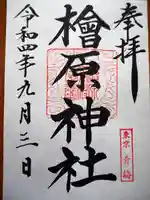 奉拝
檜原神社
令和四年九月三日
東京 青梅